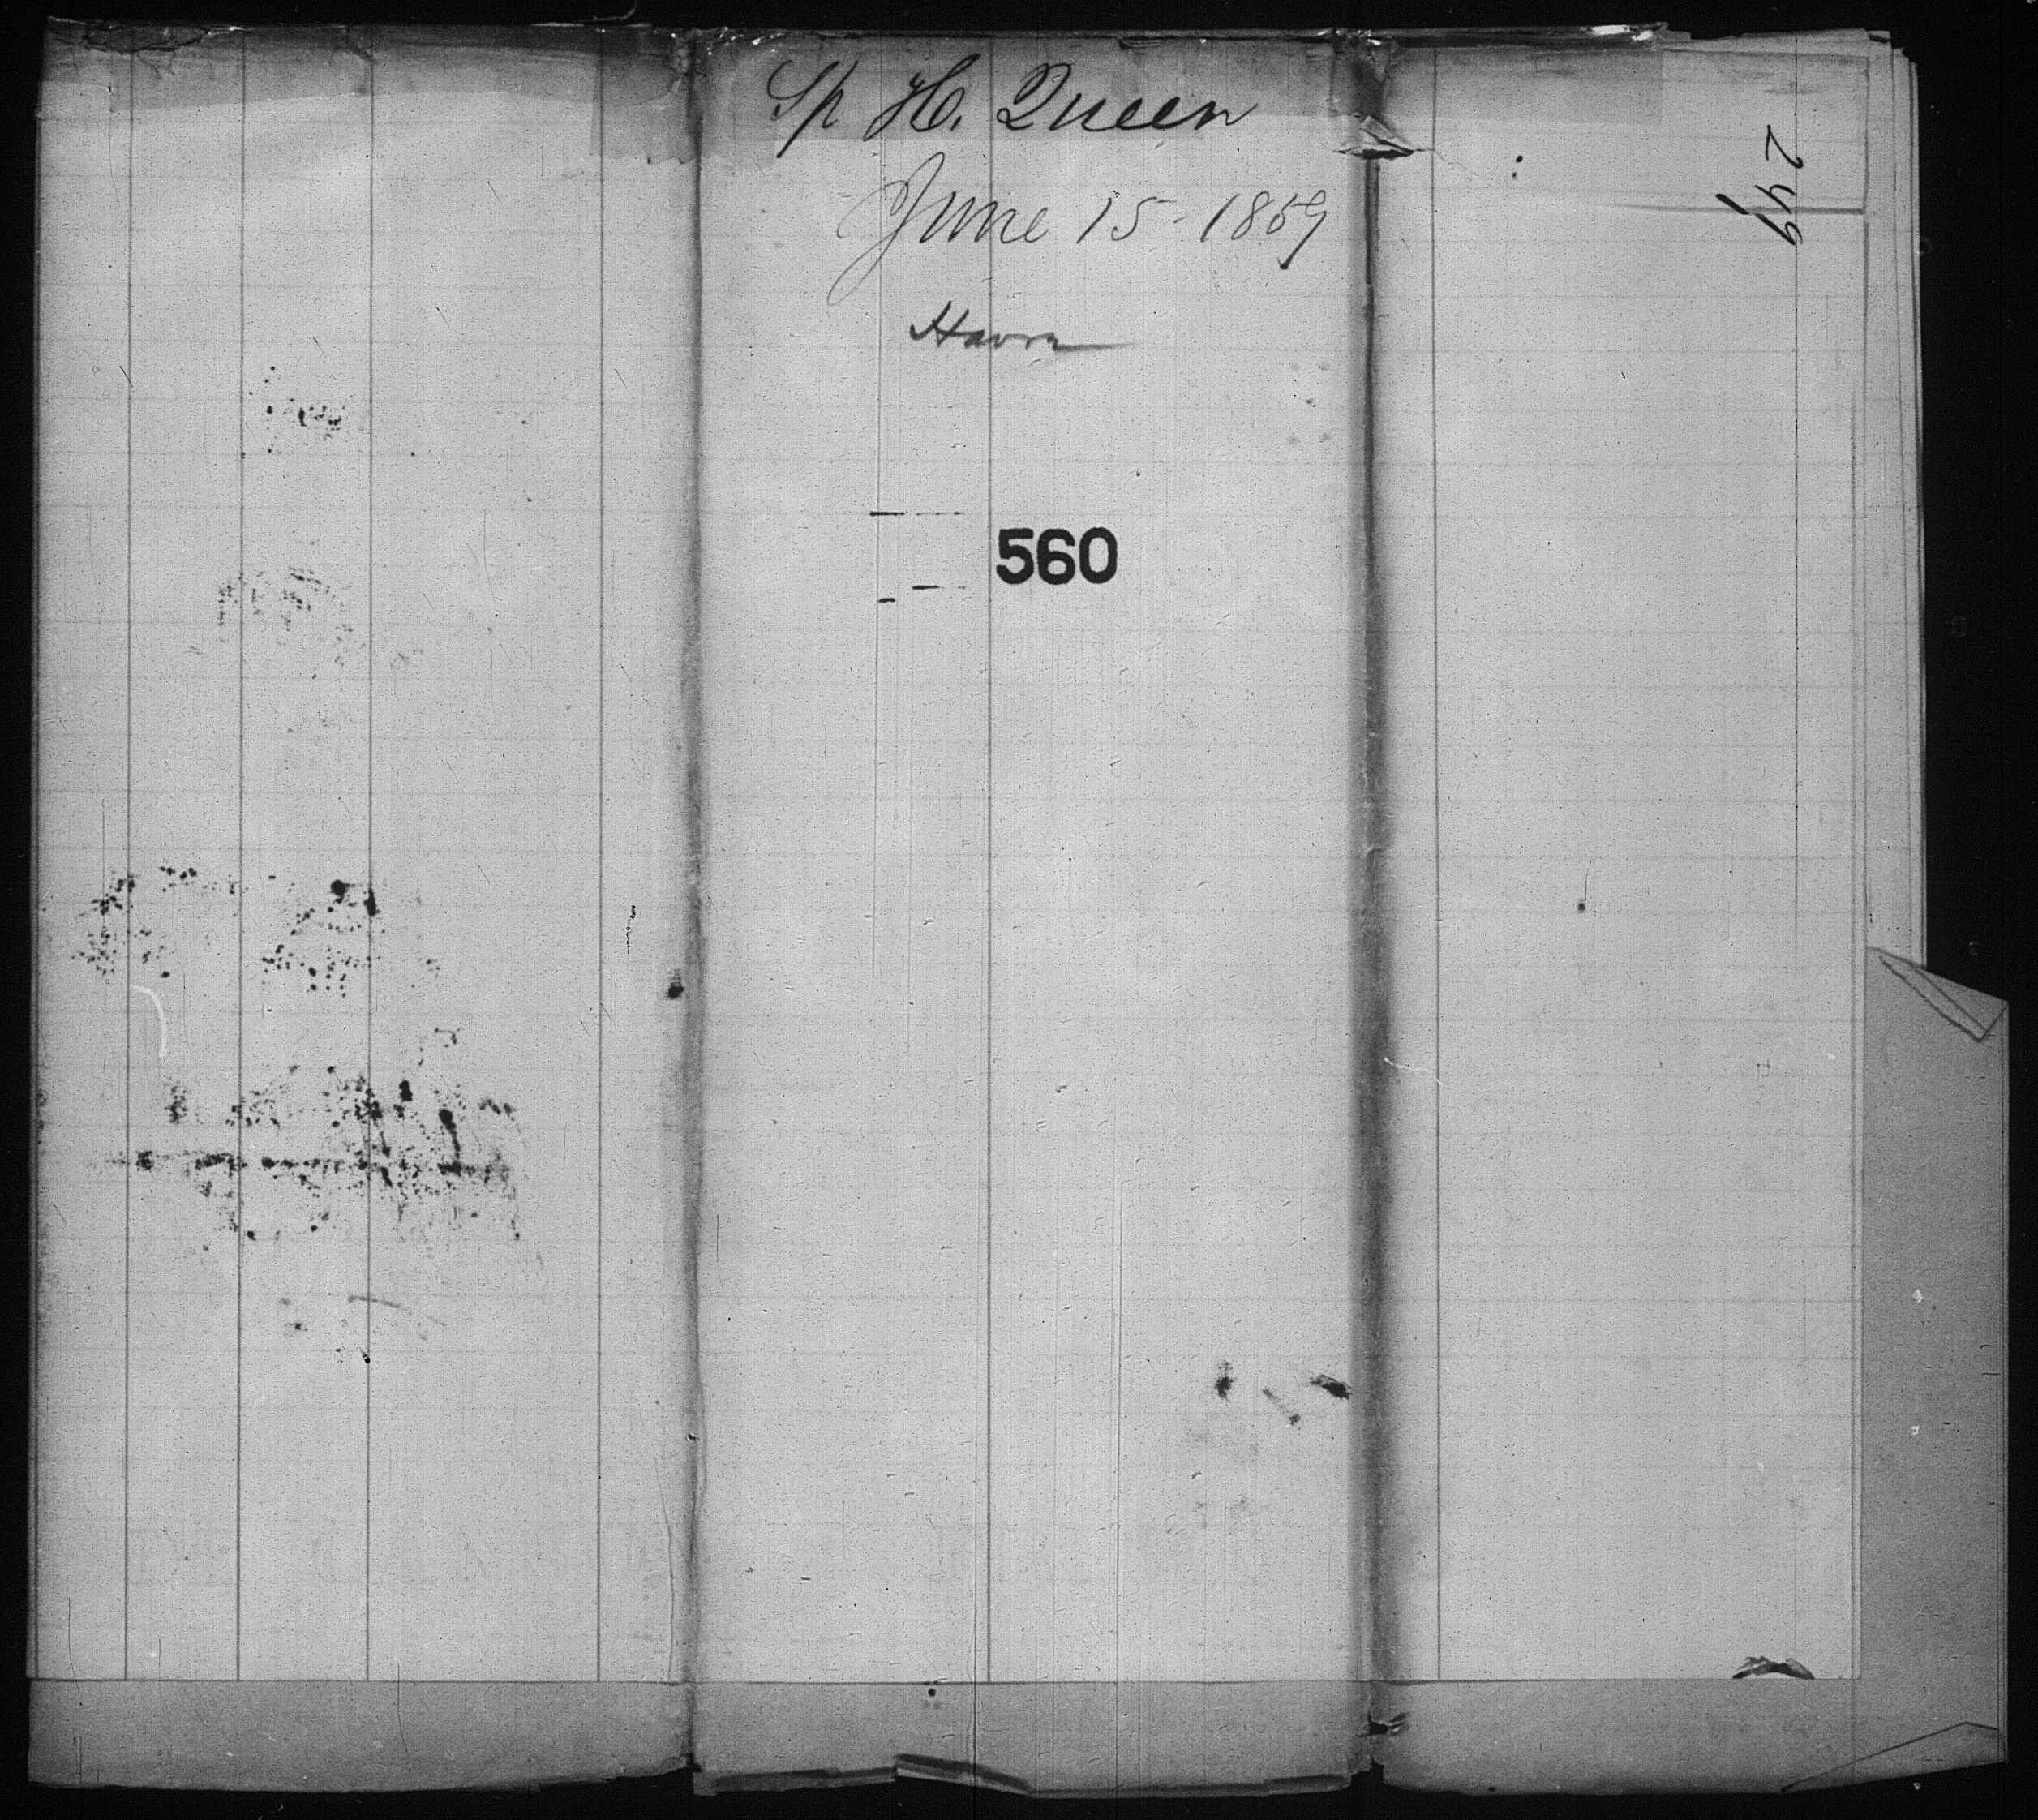 Sp H. Queen
June 15 - 1859
Havre
560
249